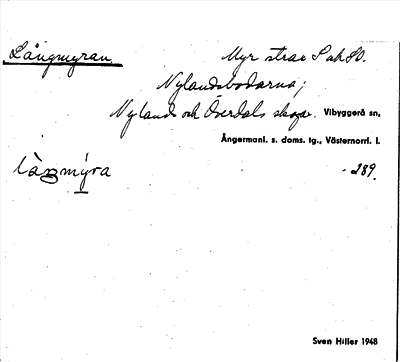 Långmyran Myr strax S och SO.
Nylandsbodarna;
Nylands och Överdals skogar. Vibyggerå sn,
Ångermanl. s. doms. tg., Västernorrl. l.
låŋmỳra - 289.
Sven Hiller 1948